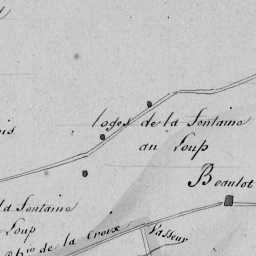 loges de la fontaine
au Loup
ois
Beaulot
la fontaine
Loup
de la Croix
Vasseur